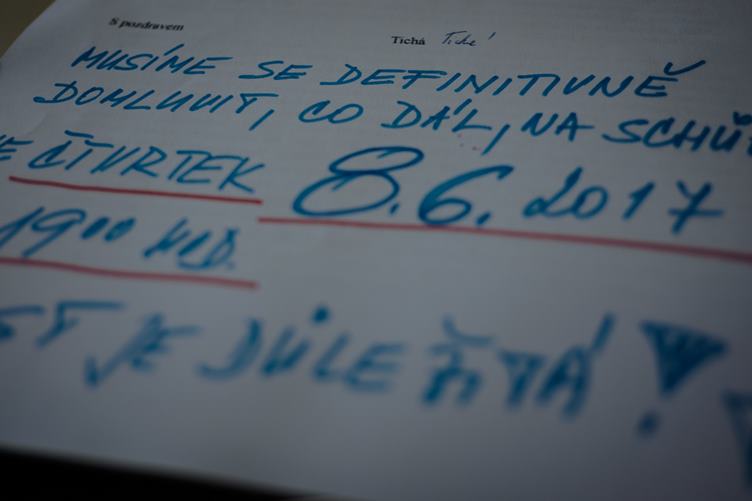 S pozdravem
Tichá Tichá
MUSÍME SE DEFINITIVNĚ
DOMLUVIT, CO DÁL, NA SCHŮ
E ČTVRTEK 8.6.2017
19⁰⁰ HOD.
ST JE DŮLEŽITÁ!